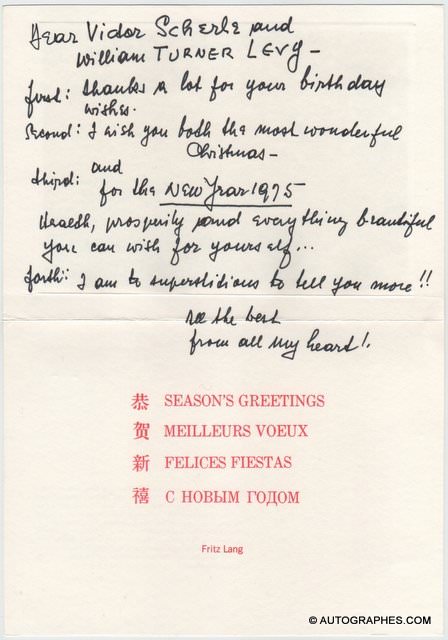 Dear Victor Scherle and
William TURNER LEVY –
first: thanks a lot for your birthday
wishes.
Second: I wish you both the most wonderful
Christmas –
third: and
for the NEW Year 1975
Health, prosperity and everything beautiful
you can wish for yourself...
forth: I am to superstitious to tell you more!!
All the best
from all my heart!
恭 SEASON'S GREETINGS
贺 MEILLEURS VOEUX
新 FELICES FIESTAS
禧 С НОВЫМ ГОДОМ
Fritz Lang
© AUTOGRAPHES.COM